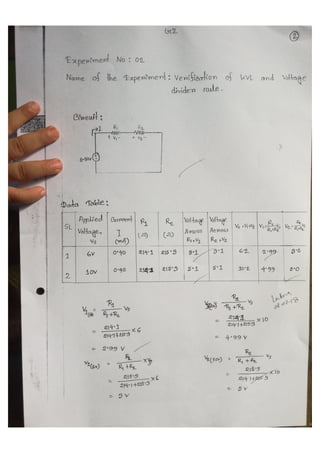 G2
2
Experiment No : 02
Name of the Experiment : Verification of KVL and Voltage
divider rule.
Circuit :
R1 R2
+ V1 - + V2 -
Data Table :
SL Applied Voltage, Vs Current I (mA) R1 (Ω) R2 (Ω) Voltage Across R1, V1 Voltage Across R2, V2
1 6V 0.40 214.1 215.3 3.1 3.1 6.2 2.99 3.0
2 10V 5.1 5.1 10.2 4.99
= R1 / R1+R2 Vs
= 214.1 / 214.1+215.3 × 6
= 2.99 V
= R2 / R1+R2
= 215.3 / 214.1+215.3 × 6
= 3V
R1 / R1+R2 Vs
= 214.1 / 214.1+215.3 × 10
= 4.99 V
= R2 / R1+R2 Vs
= 215.3 / 214.1+215.3 × 10
= 5V